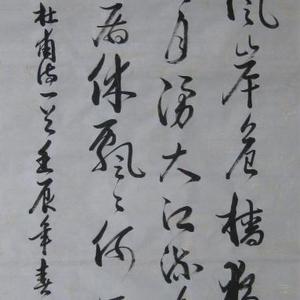 風岸危檣獨
月湧大江流
病休飄〻何
杜甫詩一首壬辰年春